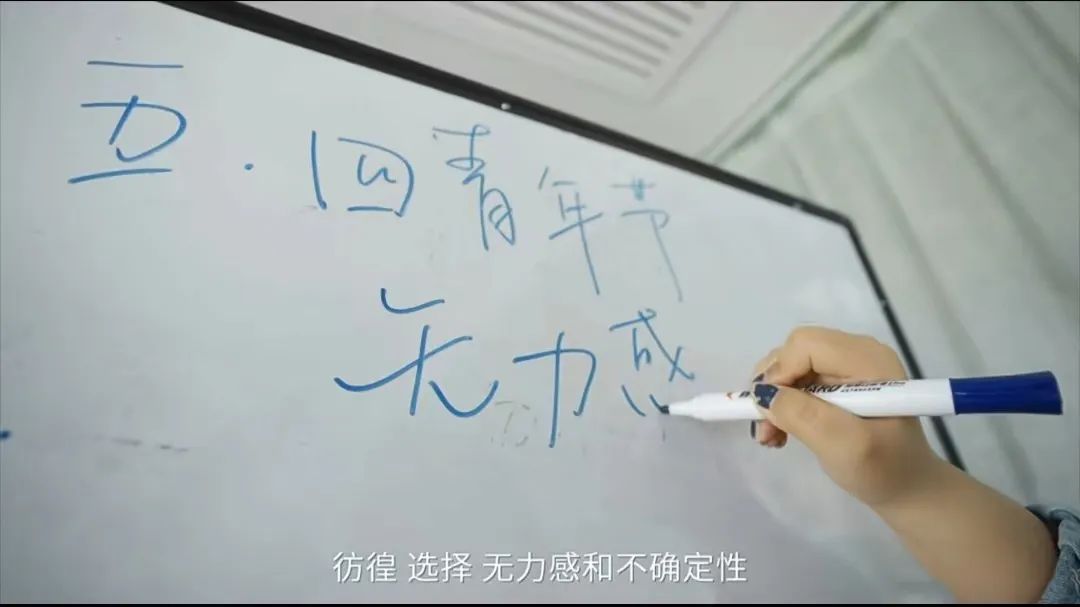 五·四青年节
无力感
彷徨 选择 无力感和不确定性